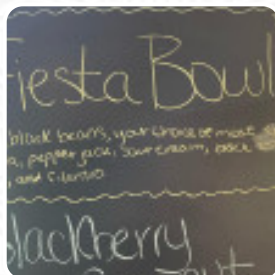 Fiesta Bowl
black beans, your choice of meat
a, pepper jack, sour cream, black
, and cilantro
blackberry